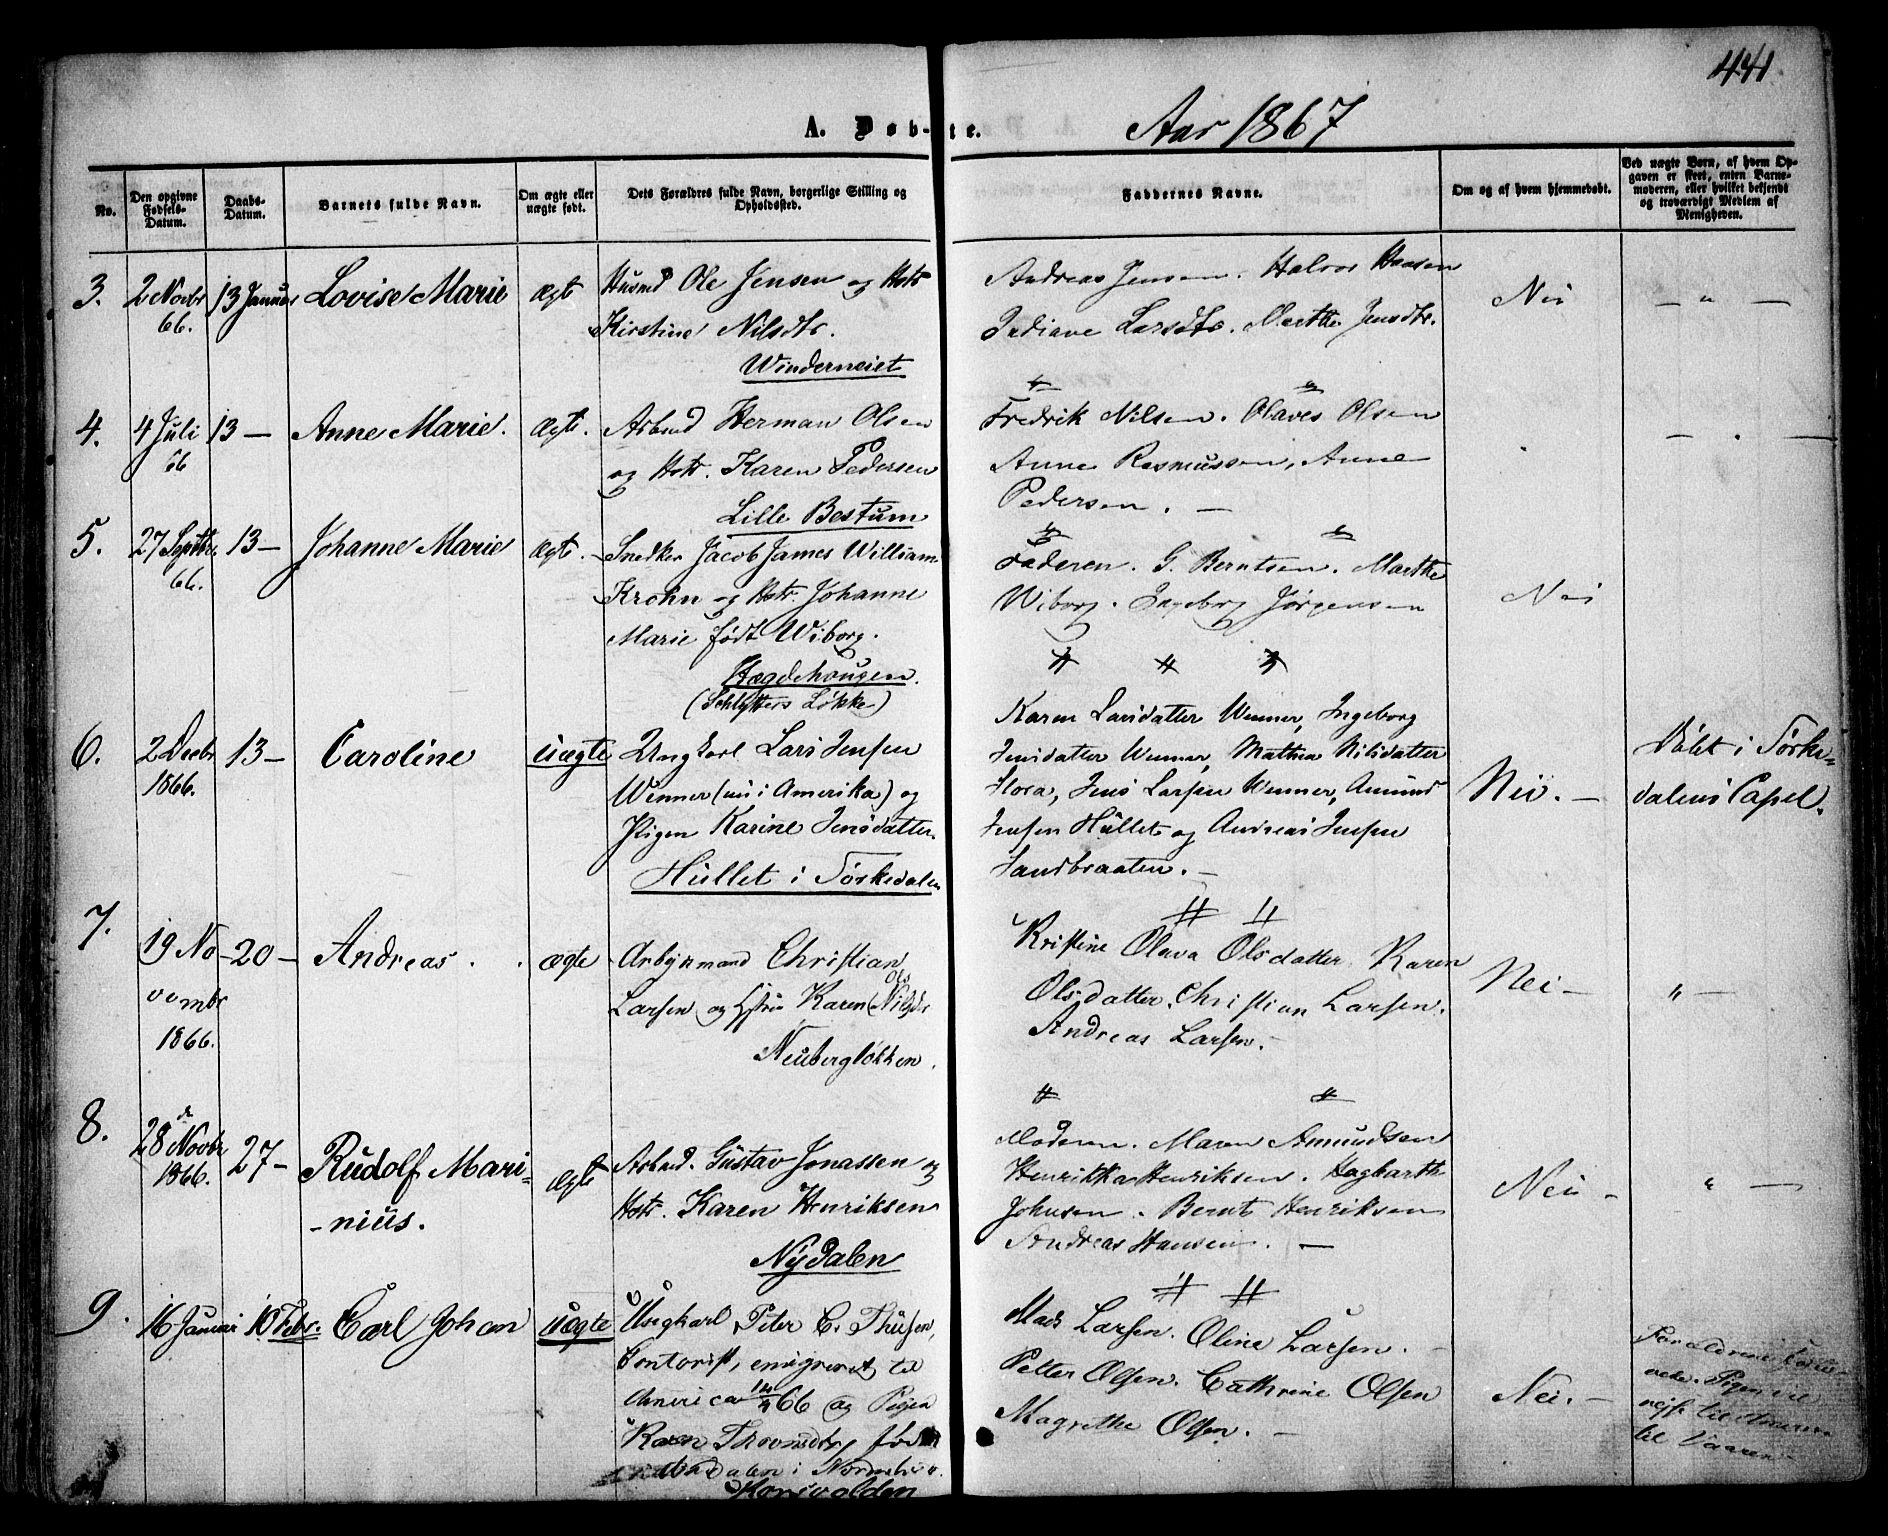 441
A. Døb-te.
Aar 1867
No.
Den opgivne Fødsels-Datum.
Daabs-Datum.
Barnets fulde Navn.
Om ægte eller uægte født.
Dets Forældres fulde Navn, borgerlige Stilling og Opholdssted.
Faddernes Navne.
Om og af hvem hjemmedøbt.
Ved uægte Børn, af hvem Opgaven er skeet, enten Barnemoderen, eller hvilket bekjendt og troværdigt Medlem af Menigheden.
3.
2 Novbr 66.
13 Januar
Lovise Marie
ægte
Husmd Ole Jensen og Hstr
Kirstine Nilsdtr.
Winderneiet
Andreas Jensen. Halvor Hansen
Indiane Larsdtr. Marthe Jensdtr.
Nei
— " —
4.
4 Juli 66
13 —
Anne Marie.
ægte.
Arbmd Herman Olsen
og Hstr. Karen Pedersen
Lille Bestum
Fredrik Nilsen. Olaves Olsen
Anne Rasmussen, Anne
Pedersen. —
— . —
5.
27 Septbr 66.
13 —
Johanne Marie
ægte.
Snedker Jacob James William
Krohn og Hstr. Johanne
Marie født Wiborg.
Hægdehougen.
(Schlytters Løkke)
Faderen. G. Berntsen. Marthe
Wiborg. Ingeborg Jørgensen
Nei
6.
2 Decbr 1866.
13 —
Caroline
uægte
Ungkarl Lars Jensen
Wenner (nu i Amerika) og
Pigen Karine Jensdatter.
Hullet i Sørkedalen
Karen Larsdatter Wenner, Ingeborg
Jensdatter Wenner, Mathea Nilsdatter
Flora, Jens Larsen Wenner, Amund
Jensen Hullet og Andreas Jensen
Sandbraaten. —
Nei. —
Døbt i Sørke-
dalens Capel.
7.
19 No-
vembr
1866.
20 —
Andreas.
ægte
Arbejdsmand Christian
Larsen og Hstru Karen (Nilsdr
Ols
Neubergløkken.
Kristine Olava Olsdatter. Karen
Olsdatter. Christian Larsen.
Andreas Larsen. —
Nei —
" —
8.
28de Novbr
1866.
27 —
Rudolf Mari-
-nius.
ægte
Arbmd. Gustav Jonassen og
Hstr. Karen Henriksen
Nydalen
Moderen. Maren Amundsen
Henrikka Henriksen. Hagbarth
Johnsen. Bernt Henriksen
Andreas Hansen. —
Nei —
" —
9.
16 Januar
10 Febr.
Carl Johan
uægte
Ungkarl Peter C. Thusen,
Contorist, emigreret til
America 66 og Pigen
Karen
i
Mads Larsen. Oline Larsen. —
Petter Olsen. Cathrine Olsen
Magrethe Olsen. —
Nei. —
Forældrene
Pigen vil
rejse til America
til Vaaren —